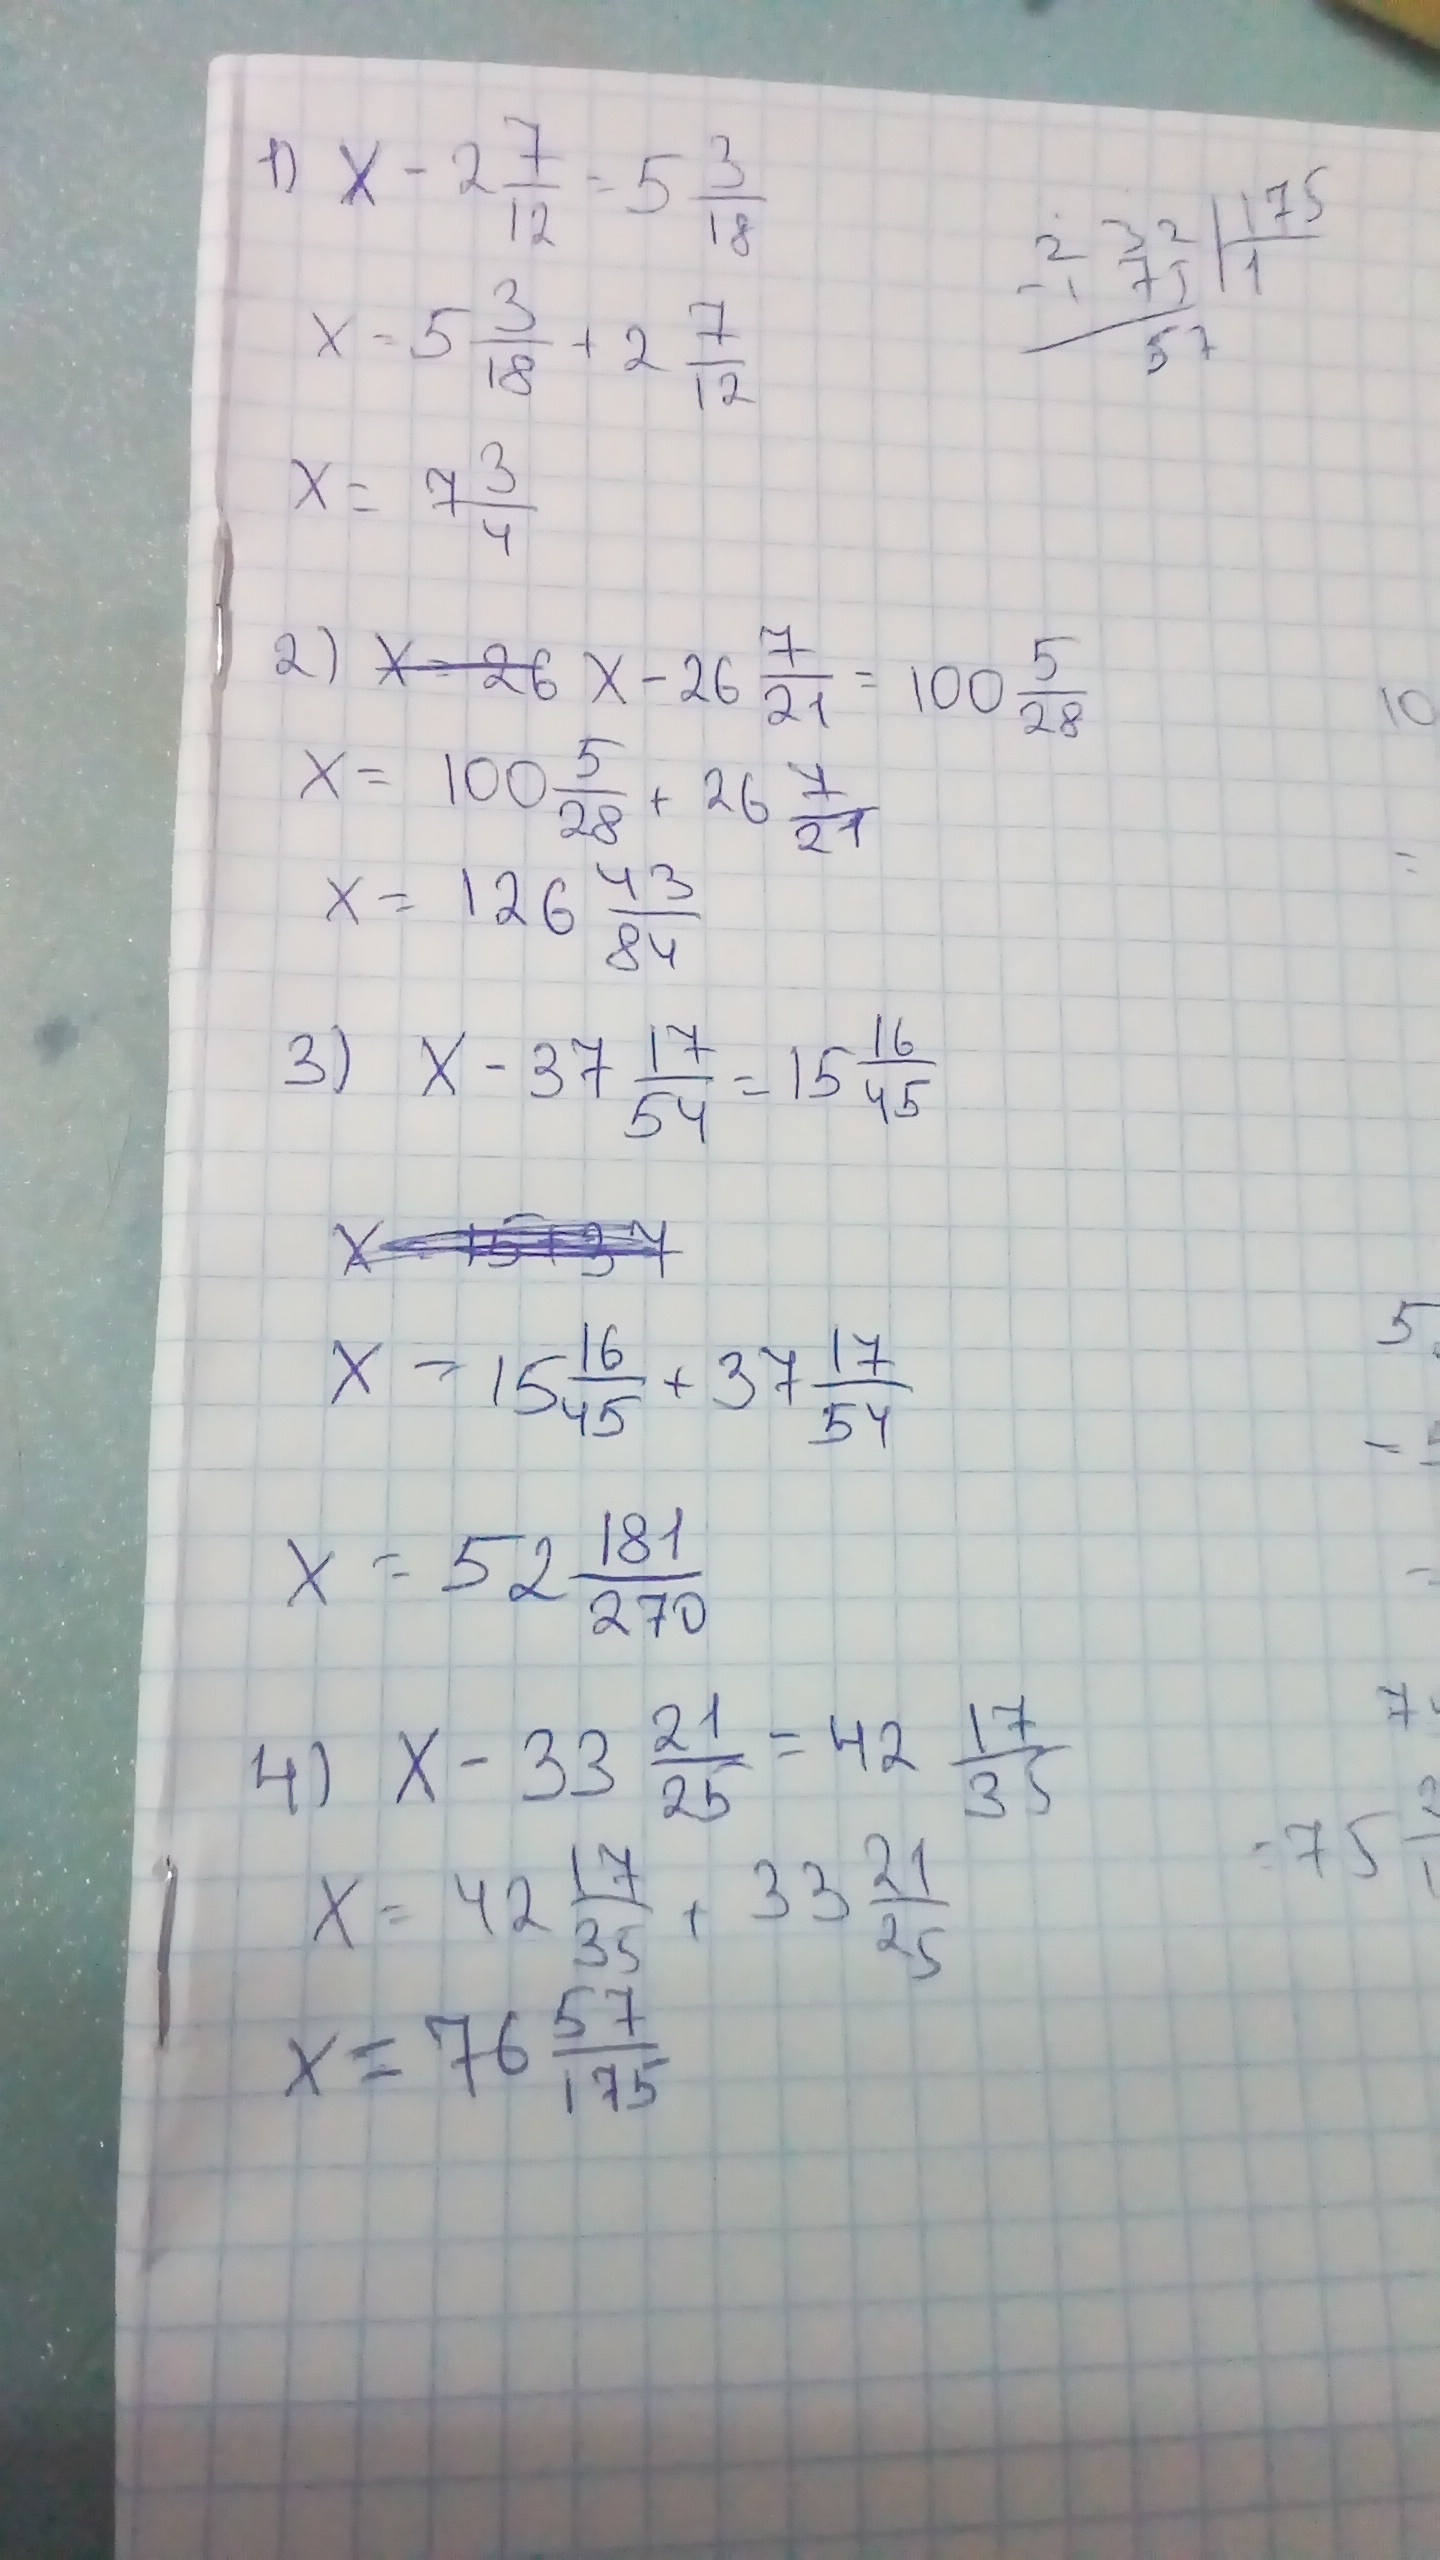 1) x - 2 7/12 = 5 3/18
x = 5 3/18 + 2 7/12
x = 7 3/4
232 | 175
- 175 | 1
57
2) x - 26 x - 26 7/21 = 100 5/28
x = 100 5/28 + 26 7/21
x = 126 43/84
3) x - 37 17/54 = 15 16/45
x = 15 16/45 + 37 17/54
x = 52 181/270
4) x - 33 21/25 = 42 17/35
x = 42 17/35 + 33 21/25
= 75
x = 76 57/175